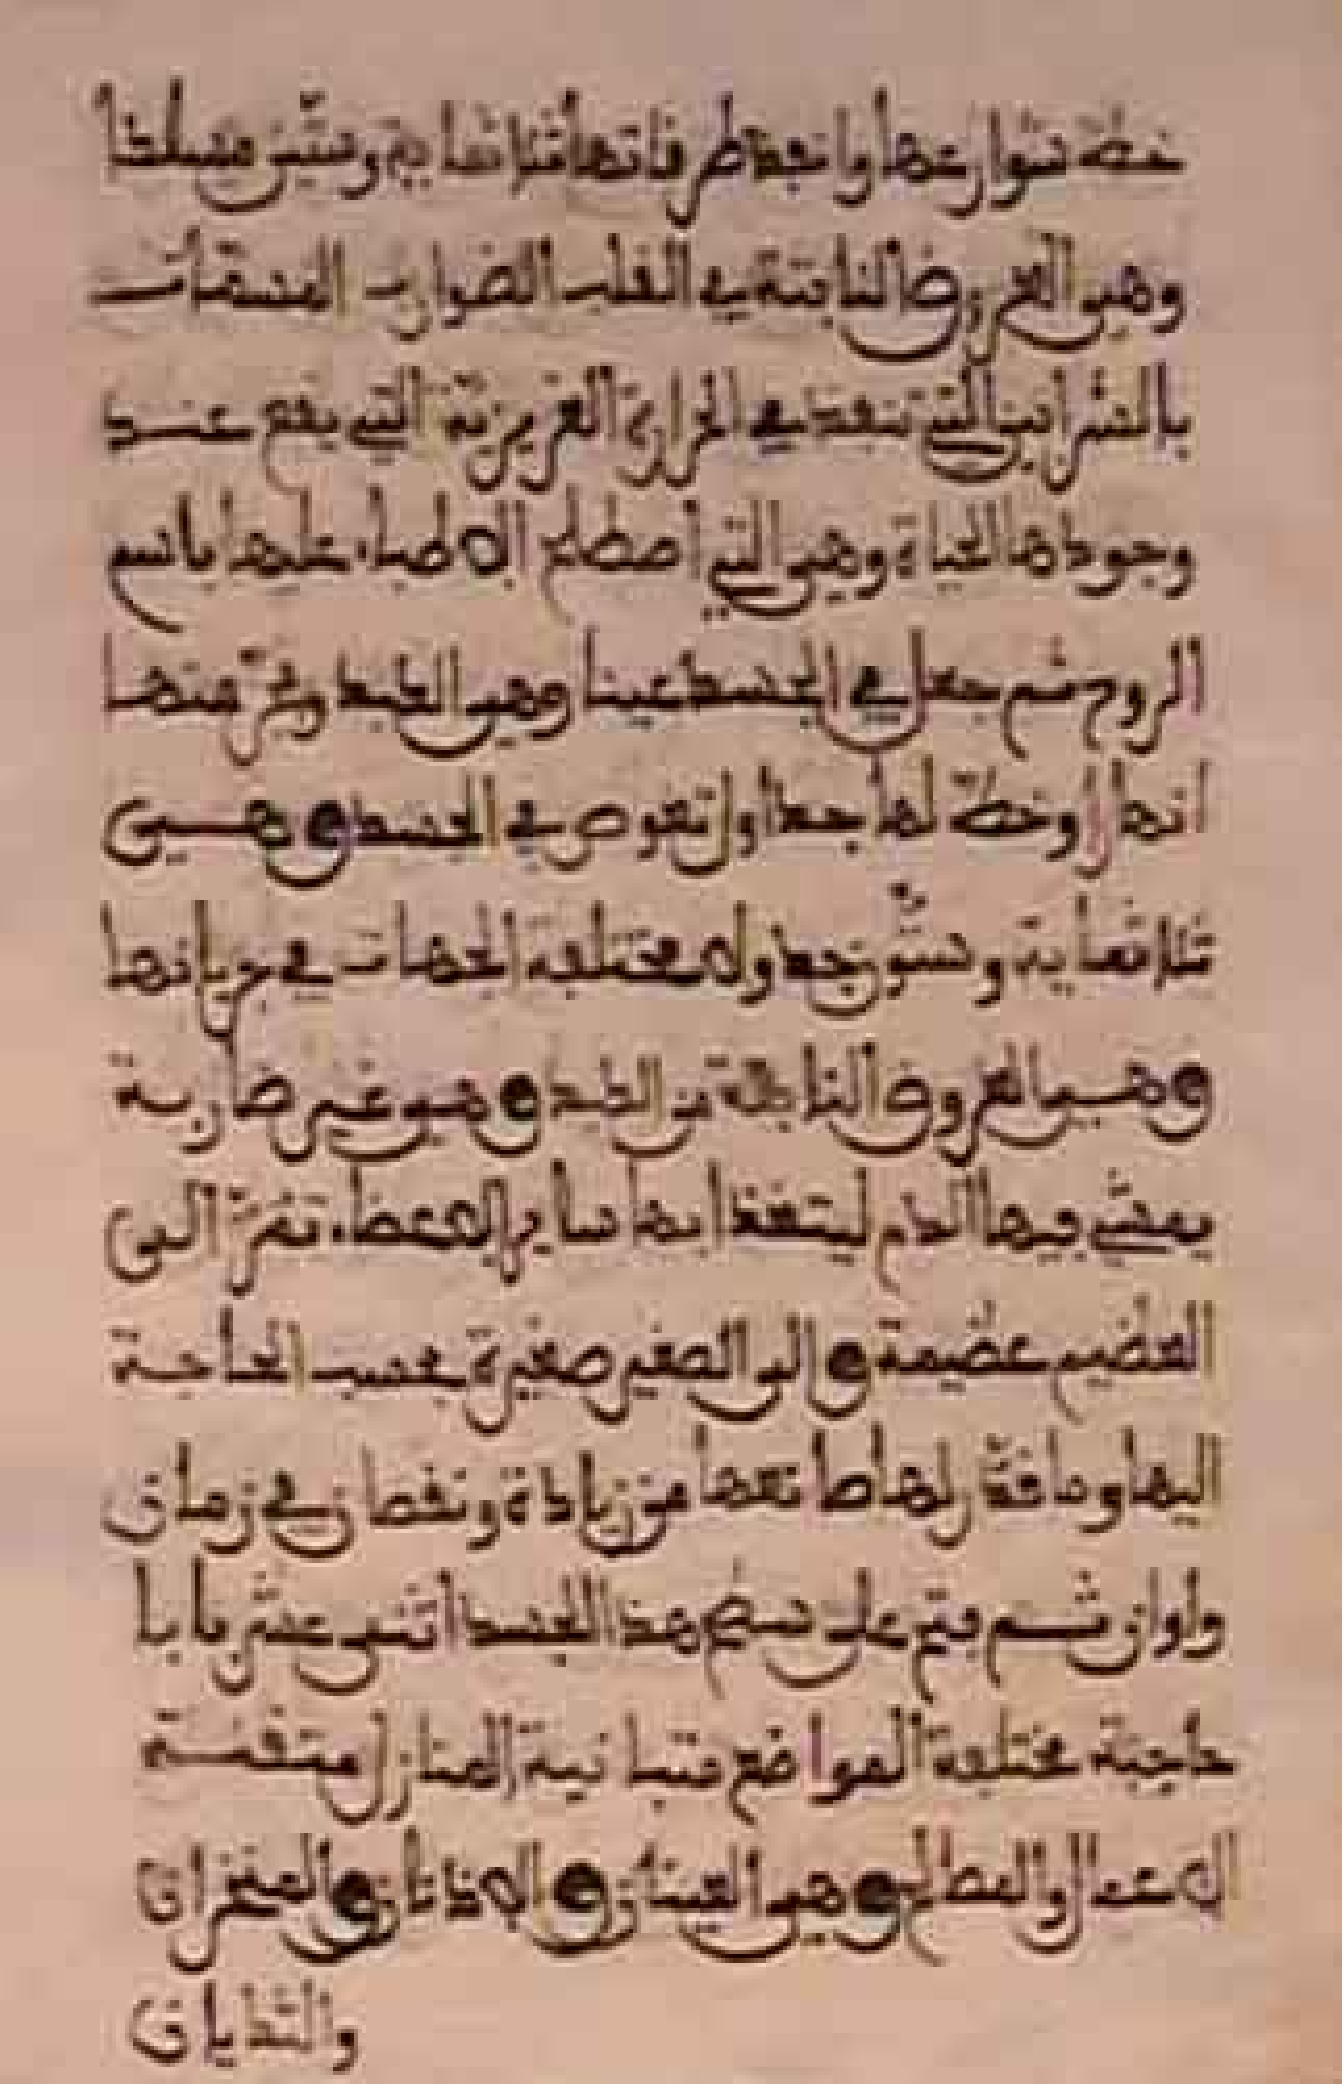 خطة شوارعها وانفذ طرفاتها ثلاثماية وستين مسلكا
وهي العروق النابتة في القلب الضوارب المسمات
بالشرايين التي تنفذ في الحرارة الغريزية التي يقع عند
وجودها الحياة وهي التي اصطلح الاطباء عليها باسم
الروح ثم جعل في الجسد عينا وهي الكبد وفجر منها
انهارا وخطة لها جداول تغوص في الجسد وهي
ثلاثماية وستون جدولا مختلفة الجهات في جريانها
وهي العروق النابتة من الكبد وهي غير ضاربة
يمشي فيها الدم ليتغذا بها سايرالاعضاء تمر الى
العضيم عضيمة والى الصغير صغيرة بحسب الحاجة
اليها وما قدر لها طانعها من زيادة ونقصان في زمان
واوان ثم فتح على سطح هذا الجسد اثنى عشر بابا
حاجبة مختلفة المواضع متباينة المنازل متقسمة
الاعمال والمصالح وهي العينان والاذنان والمنخران
والثديان